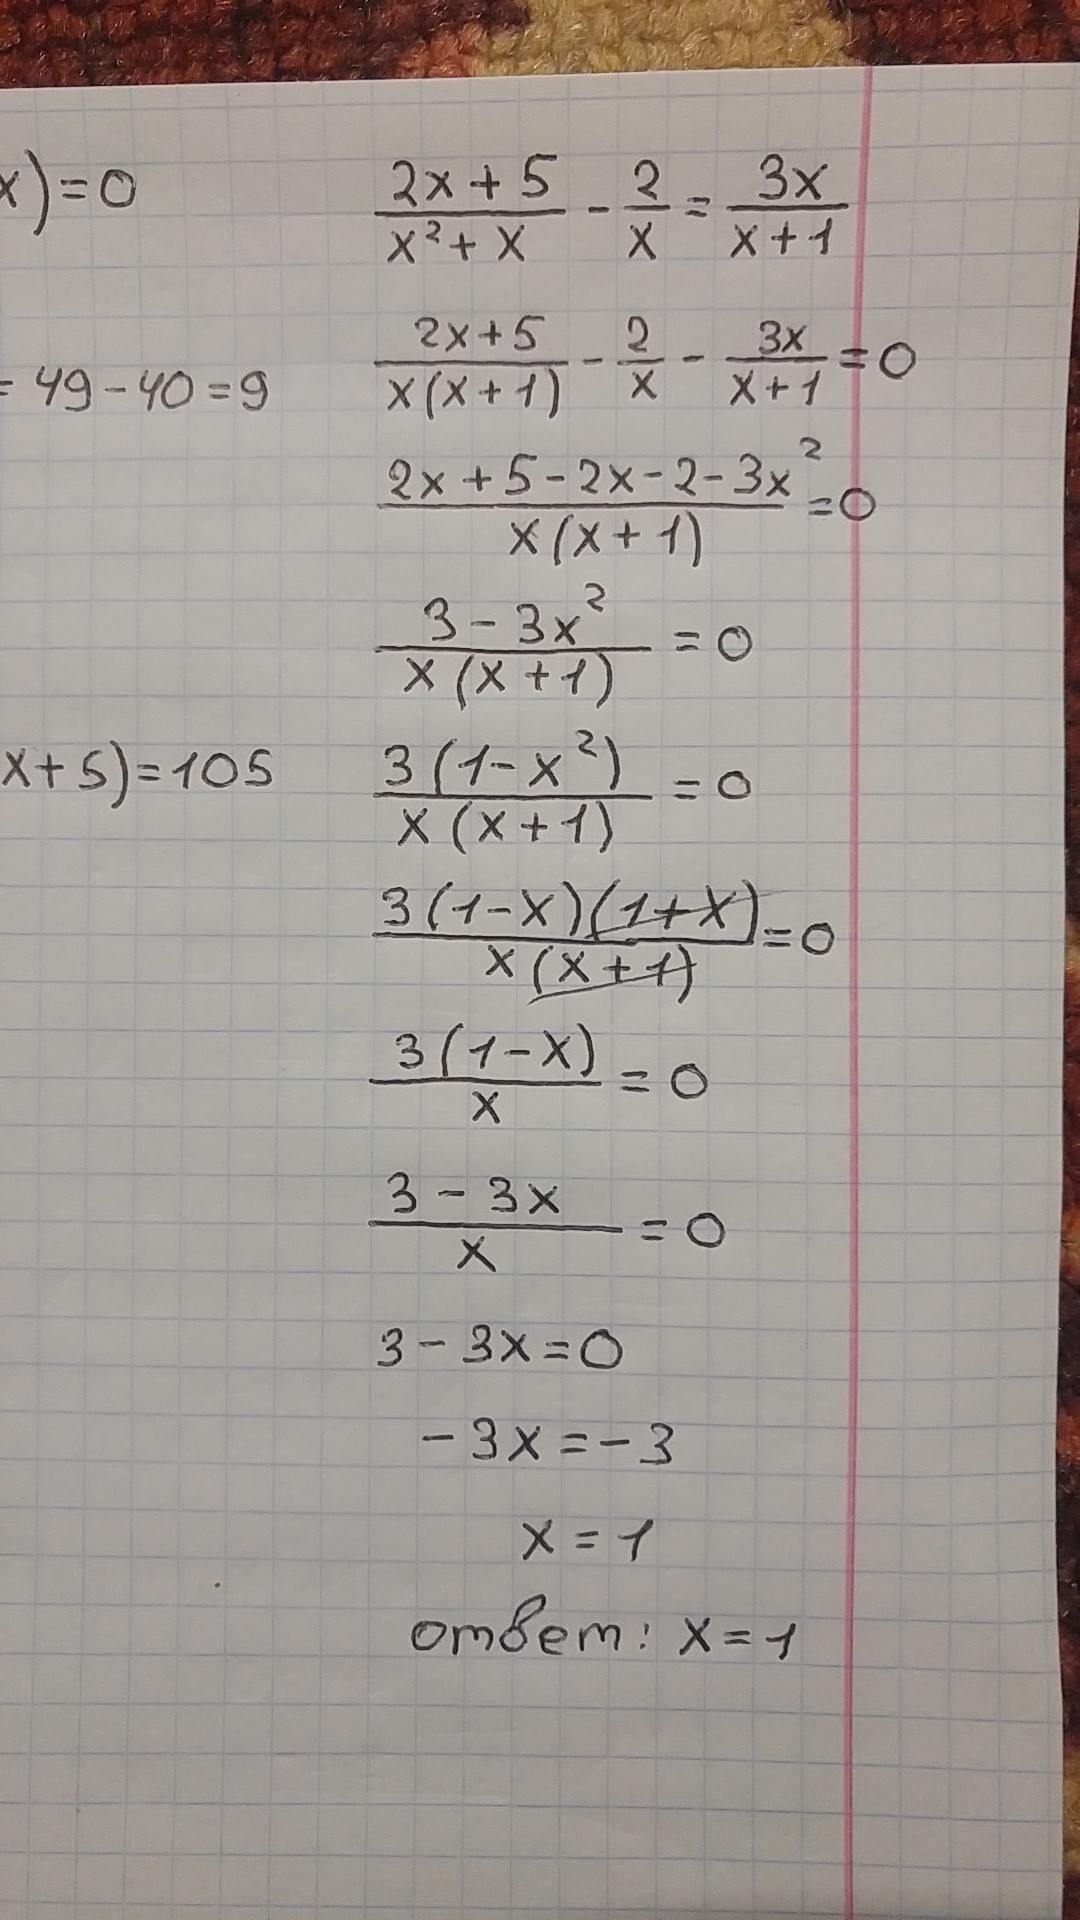 x)=0
= 49-40=9
x+5)=105
(2x+5)/(x²+x) - 2/x = 3x/(x+1)
(2x+5)/(x(x+1)) - 2/x - 3x/(x+1) = 0
(2x+5-2x-2-3x²)/(x(x+1)) = 0
(3-3x²)/(x(x+1)) = 0
3(1-x²)/(x(x+1)) = 0
3(1-x)(1+x)/(x(x+1)) = 0
3(1-x)/x = 0
(3-3x)/x = 0
3-3x=0
-3x=-3
x=1
ответ: x=1